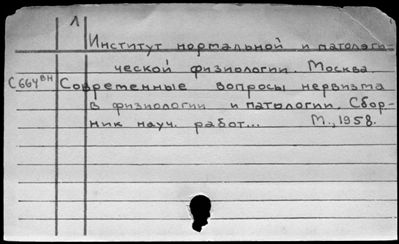 Л
Институт нормальной и патологи-
ческой физиологии. Москва.
С664вн Современные вопросы нервизма
в физиологии и патологии. Сбор-
ник науч. работ... М., 1958.